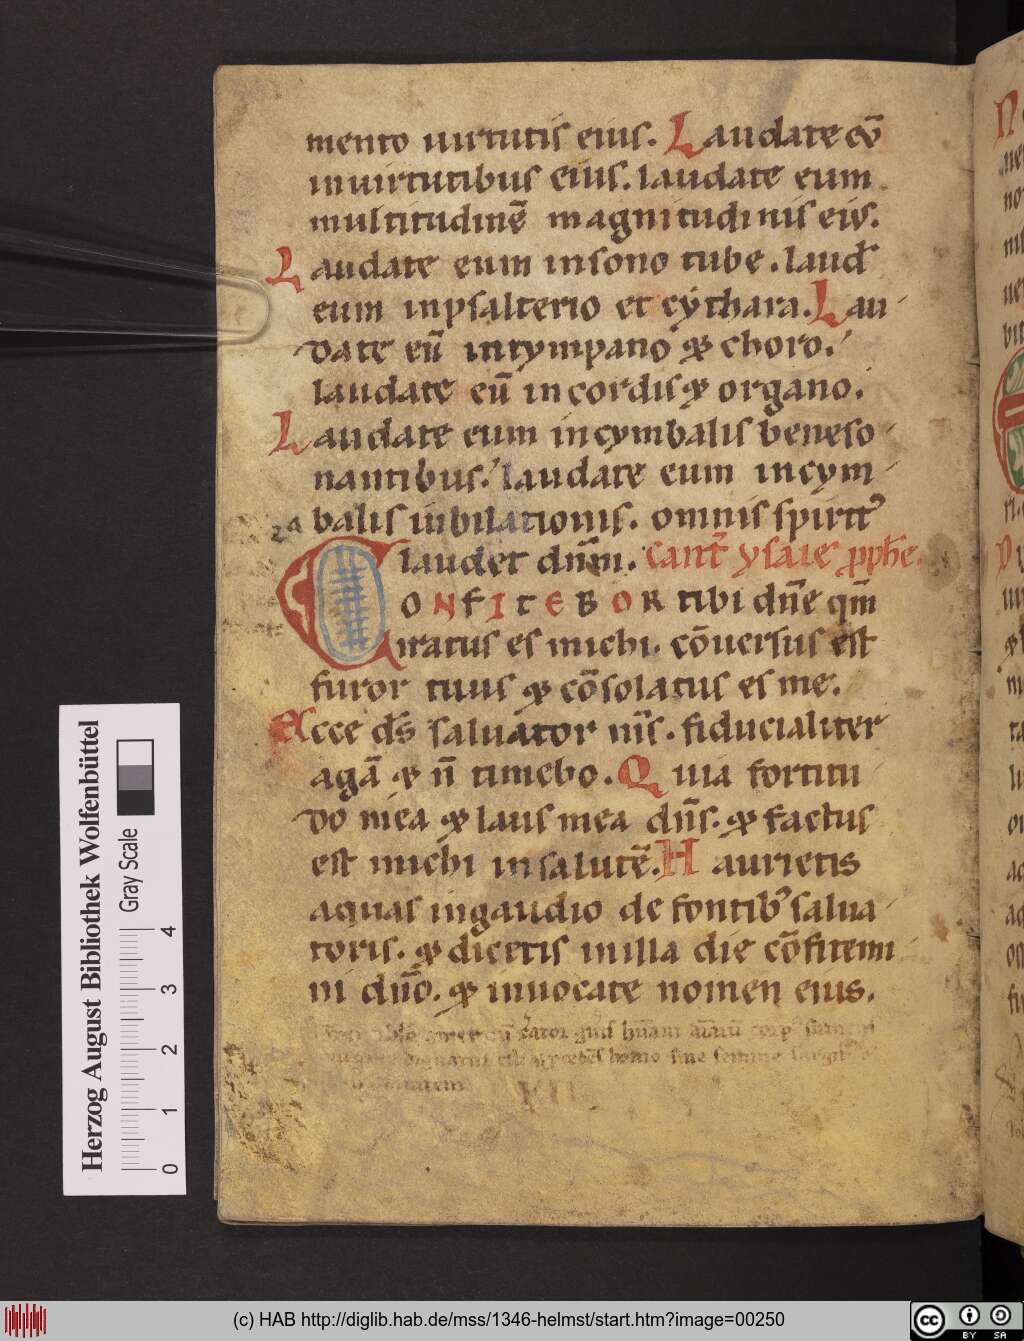 mento uirtutis eius. Laudate eū
inuirtutibus eius. laudate eum
multitudinē magnitudinis eius.
Laudate eum insono tube. laud̄
eum inpsalterio et cythara. Lau-
date eū intympano & choro.
laudate eū incordis & organo.
Laudate eum incymbalis beneso-
nantibus. laudate eum incym-
balis iubilationis. omnis spirit᾿
laudet dnm̄. Cant᾿ ysaie ꝓphe.
CONFITEBOR tibi dn̄e qm̄
iratus es michi. cōuersus est
furor tuus & cōsolatus es me.
Ecce ds̄ saluator ms̄. fiducialiter
agā & n̄ timebo. Quia fortitu
do mea & laus mea dn̄s. & factus
est michi insalutē. Haurietis
aquas ingaudio de fontib᾿ salua-
toris. & dicetis inilla die cōfitemi-
ni dn̄o. & inuocate nomen eius.
homo sine semine
Herzog August Bibliothek Wolfenbüttel
Gray Scale
0 1 2 3 4
(c) HAB http://diglib.hab.de/mss/1346-helmst/start.htm?image=00250
cc BY SA